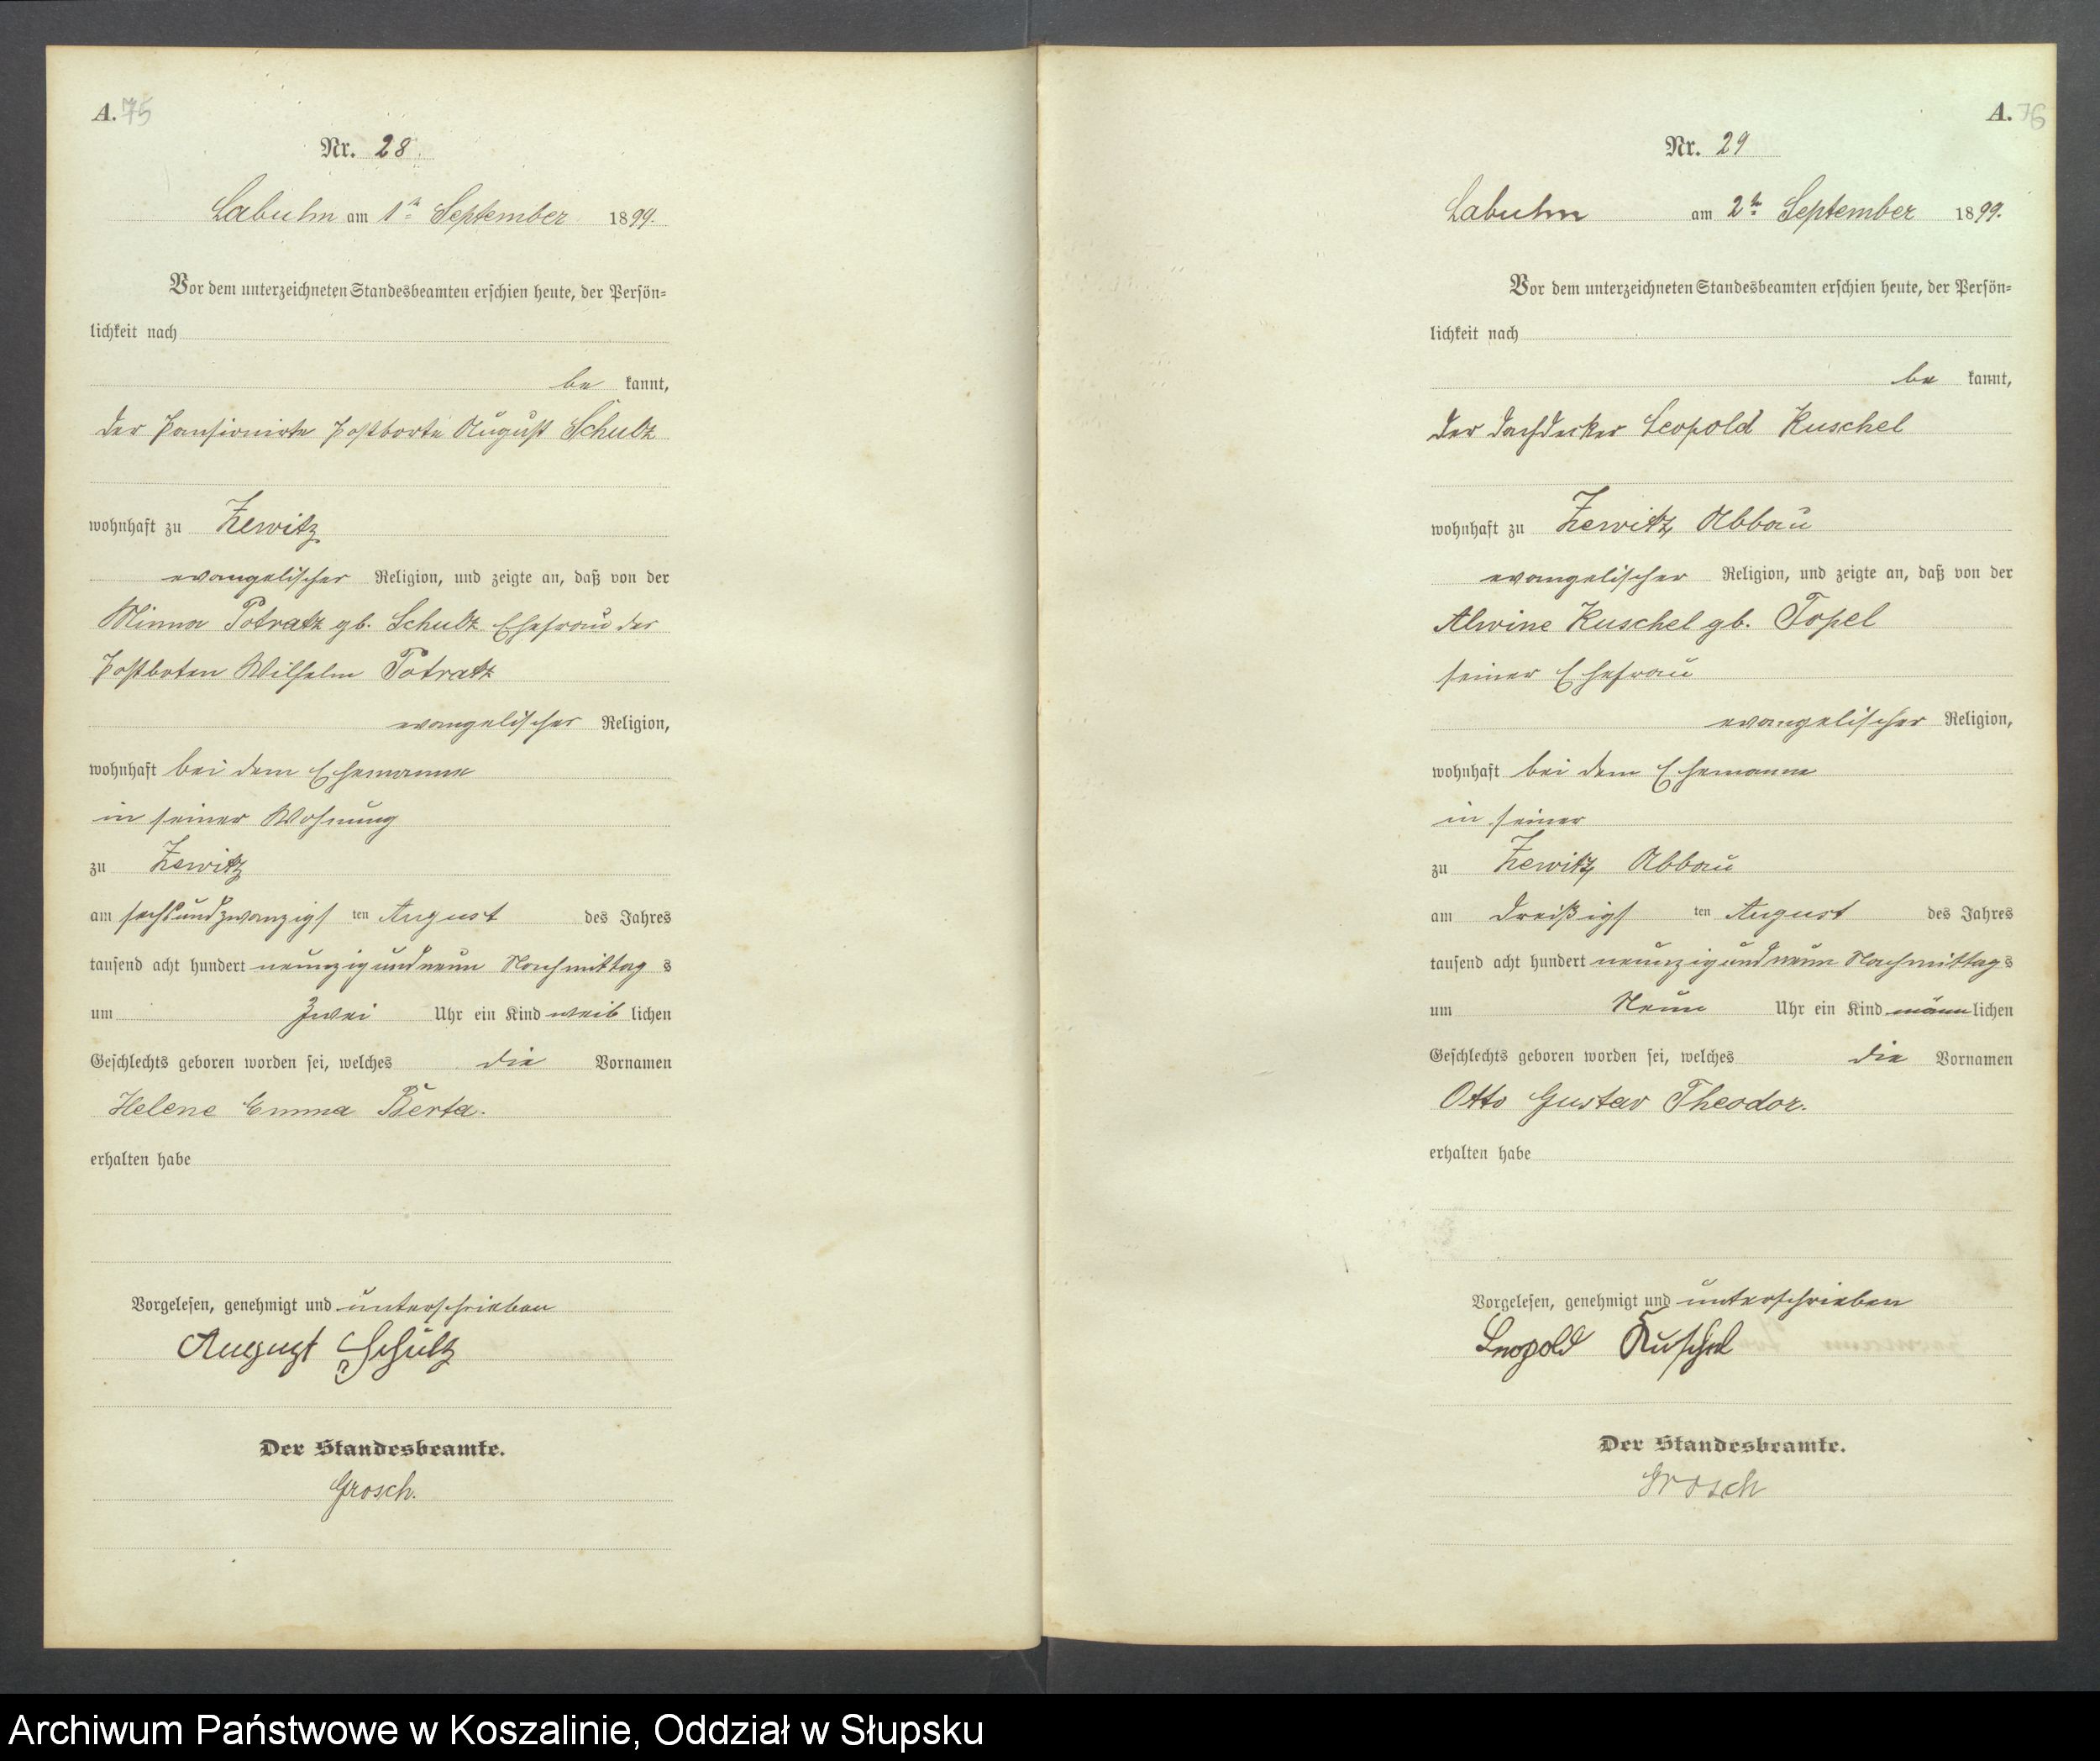 A. 75
Nr. 28
Labuhn am 1ten September 1899.
Vor dem unterzeichneten Standesbeamten erschien heute, der Persön-
lichkeit nach
be kannt,
der Pensionirte Postbote August Schulz
wohnhaft zu Zewitz
evangelischer Religion, und zeigte an, daß von der
Minna Potratz gb. Schulz Ehefrau des
Postboten Wilhelm Potratz
evangelischer Religion,
wohnhaft bei dem Ehemanne
in seiner Wohnung
zu Zewitz
am sechsundzwanzigs ten August des Jahres
tausend acht hundert neunzigundneun Nachmittag s
um Zwei Uhr ein Kind weib lichen
Geschlechts geboren worden sei, welches die Vornamen
Helene Emma Berta.
erhalten habe
Vorgelesen, genehmigt und unterschrieben
August Schulz
Der Standesbeamte.
Grosch.
A. 76
Nr. 29
Labuhn am 2ten September 1899.
Vor dem unterzeichneten Standesbeamten erschien heute, der Persön-
lichkeit nach
be kannt,
der Dachdecker Leopold Kuschel
wohnhaft zu Zewitz Abbau
evangelischer Religion, und zeigte an, daß von der
Alwine Kuschel gb. Topel
seiner Ehefrau
evangelischer Religion,
wohnhaft bei dem Ehemanne
in seiner
zu Zewitz Abbau
am dreißigs ten August des Jahres
tausend acht hundert neunzigundneun Nachmittag s
um Neun Uhr ein Kind männ lichen
Geschlechts geboren worden sei, welches die Vornamen
Otto Gustav Theodor.
erhalten habe
Vorgelesen, genehmigt und unterschrieben
Leopold Kuschel
Der Standesbeamte.
Grosch
Archiwum Państwowe w Koszalinie, Oddział w Słupsku